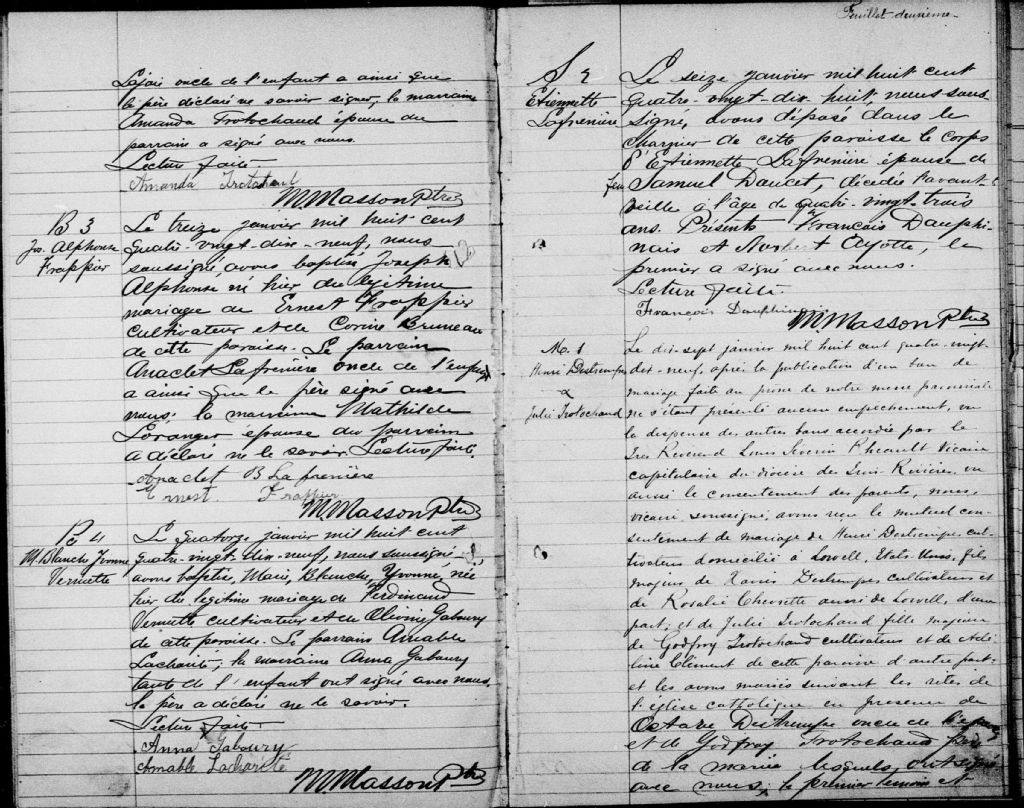 Lajoie oncle de l'enfant a ainsi que
le père déclaré ne savoir signer, la marraine
Amanda Trotochaud épouse du
parrain a signé avec nous.
Lecture faite.
Amanda Trotochaud
M.Masson Ptre
B 3
Jos. Alphonse
Frappier
Le treize janvier mil huit cent
quatre-vingt-dix-neuf, nous
soussigné, avons baptisé Joseph
Alphonse né hier du légitime
mariage de Ernest Frappier
cultivateur et de Corine Bruneau
de cette paroisse. Le parrain
Anaclet Lafrenière oncle de l'enfant
a ainsi que le père signé avec
nous; la marraine Mathilde
Loranger épouse du parrain
a déclaré ne le savoir. Lecture faite.
Anaclet B Lafrenière
Ernest Frappier
M.Masson Ptre
B 4
M. Blanche Yvonne
Vermette
Le quatorze janvier mil huit cent
quatre-vingt-dix-neuf, nous soussigné,
avons baptisé, Marie, Blanche, Yvonne, née
hier du légitime mariage de Ferdinand
Vermette cultivateur et de Olivine Gaboury
de cette paroisse. Le parrain Amable
Lacharité, la marraine Anna Gaboury
tante de l'enfant ont signé avec nous,
le père a déclaré ne le savoir.
Lecture faite.
Anna Gaboury
Amable Lacharité
M.Masson Ptre
Feuillet deuxième
S 2
Etiennette
Lafrenière
Le seize janvier mil huit cent
quatre-vingt-dix-huit, nous sous
signé, avons déposé dans le
charnier de cette paroisse le corps
d'Etiennette Lafrenière épouse de
feu Samuel Doucet, décédée l'avant-
veille à l'âge de quatre-vingt-trois
ans. Présents François Dauphi-
nais et Norbert Ayotte, le
premier a signé avec nous.
Lecture faite
François Dauphinais
M.Masson Ptre
M. 1
Henri Destrempes
&
Julie Trotochaud
Le dix-sept janvier mil huit cent quatre-vingt-
dix-neuf, après la publication d'un ban de
mariage faite au prône de notre messe paroissiale
ne s'étant présenté aucun empêchement, vu
la dispense des autres bans accordée par le
Très Révérend Louis Séverin Rheault Vicaire
capitulaire du diocèse de Trois Rivières, vu
aussi le consentement des parents, nous,
vicaire soussigné, avons reçu le mutuel con-
sentement de mariage de Henri Destrempes cul-
tivateur domicilié à Lowell, Etats Unis, fils
majeur de Destrempes cultivateur et
de Rosalie Chevrette aussi de Lowell, d'une
part; et de Julie Trotochaud fille majeure
de Godfroy Trotochaud cultivateur et de Adé-
line Clément de cette paroisse d'autre part;
et les avons mariés suivant les rites de
l'église catholique en présence de
Octave Destrempe oncle de l'époux
et de Godfroy Trotochaud père
de la mariée lesquels ont signé
avec nous, le premier témoin et